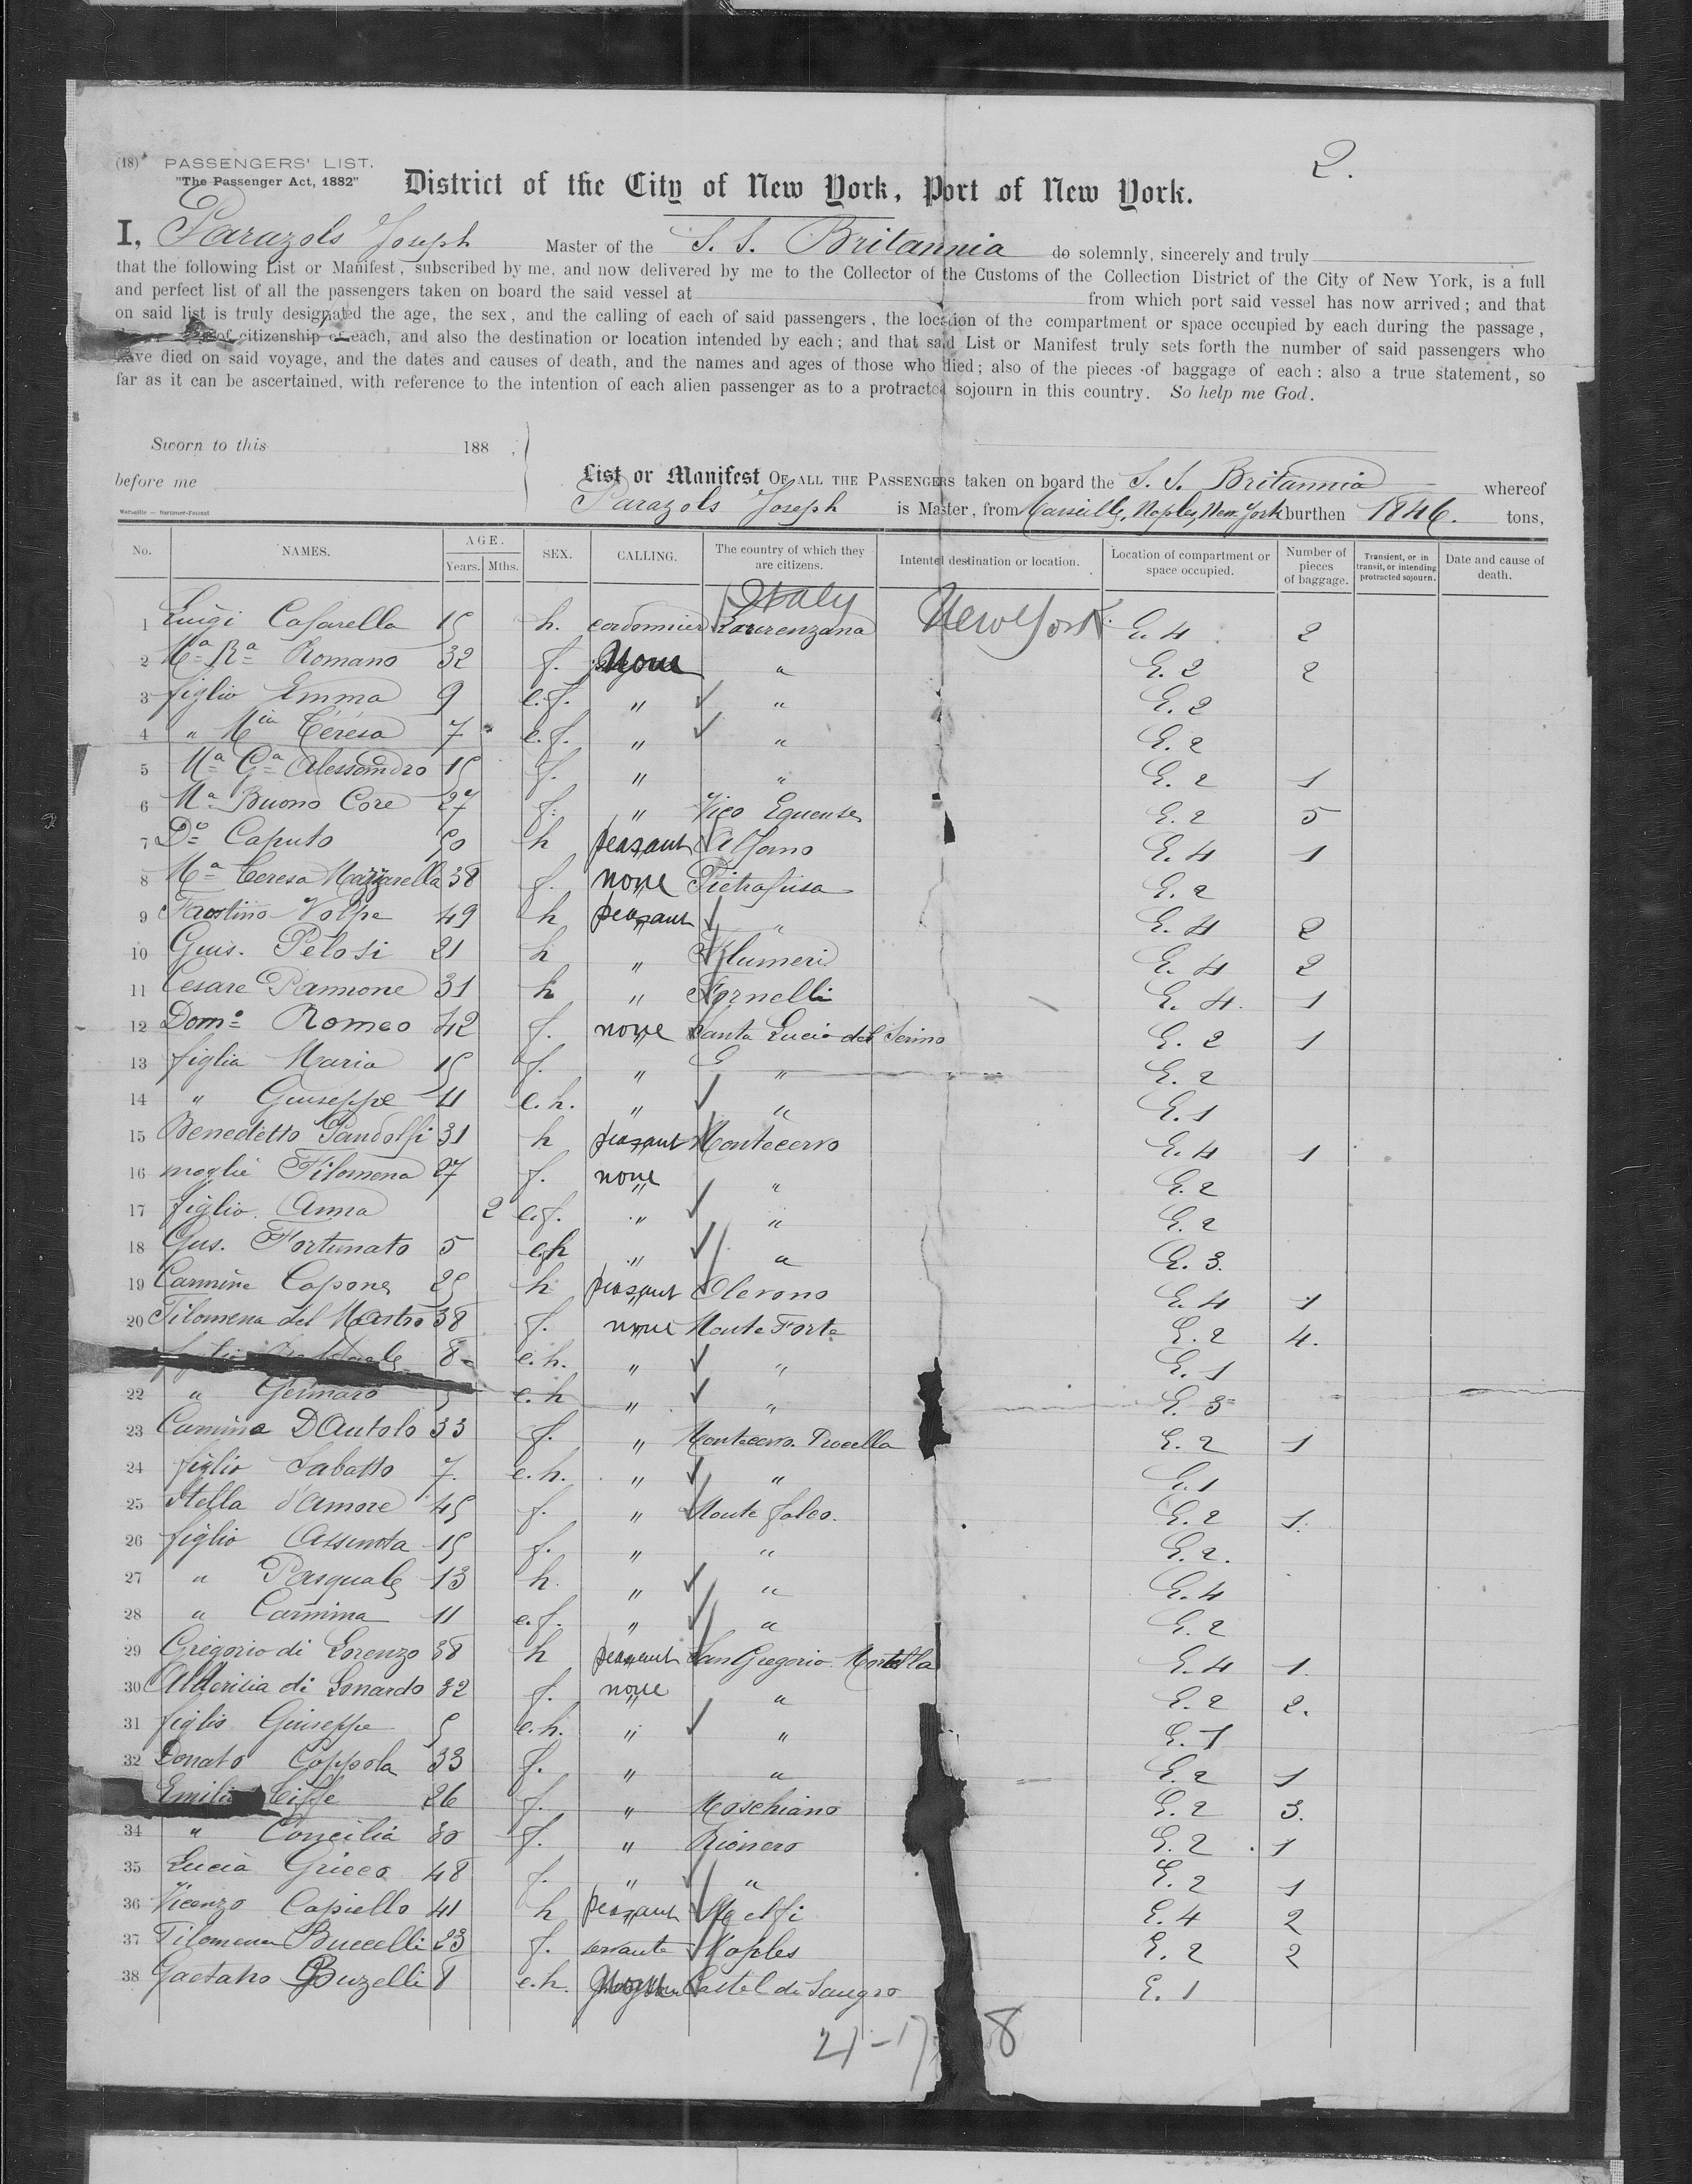 2.
(18) PASSENGERS' LIST.
"The Passenger Act, 1882"
District of the City of New York, Port of New York.
I, Parazols Joseph Master of the S. S. Britannia do solemnly, sincerely and truly
that the following List or Manifest, subscribed by me, and now delivered by me to the Collector of the Customs of the Collection District of the City of New York, is a full
and perfect list of all the passengers taken on board the said vessel at from which port said vessel has now arrived; and that
on said list is truly designated the age, the sex, and the calling of each of said passengers, the location of the compartment or space occupied by each during the passage,
of citizenship of each, and also the destination or location intended by each; and that said List or Manifest truly sets forth the number of said passengers who
have died on said voyage, and the dates and causes of death, and the names and ages of those who died; also of the pieces of baggage of each: also a true statement, so
far as it can be ascertained, with reference to the intention of each alien passenger as to a protracted sojourn in this country. So help me God.
Sworn to this 188
before me
List or Manifest OF ALL THE PASSENGERS taken on board the S. S. Britannia whereof
Parazols Joseph is Master, from Marseille, Naples, New York burthen 1846. tons,
No. NAMES. AGE. Years. Mths. SEX. CALLING. The country of which they are citizens. Intented destination or location. Location of compartment or space occupied. Number of pieces of baggage. Transient, or in transit, or intending protracted sojourn. Date and cause of death.
Italy New York
1 Luigi Casarella 15 h. cordonnier Laurenzana E. 4 2
2 Ma Ra Romano 32 f. None " E. 2 2
3 figlio Emma 9 e.f. " " E. 2
4 " Mia Téresa 7 e.f. " " E. 2
5 Ma Ga Alessandro 15 f. " " E. 2 1
6 Ma Buono Core 27 f. " Vico Equense E. 2 5
7 Do Caputo 50 h peasant Alfano E. 4 1
8 Ma Teresa Mazzarella 38 f. none Pietrafusa E. 2
9 Faostino Volpe 49 h peasant " E. 4 2
10 Guis. Pelosi 21 h " Flumeri E. 4 2
11 Cesare Pannone 31 h " Fornelli E. 4. 1
12 Domo Romeo 42 f. none Santa Lucia del Serino E. 2 1
13 figlia Maria 15 f. " " E. 2
14 " Guiseppe 11 e.h. " " E. 1
15 Benedetto Pandolfi 31 h peasant Montecorvo E. 4 1
16 moglie Filomena 27 f. none " E. 2
17 figlio Anna 2 e.f. " " E. 2
18 Gus. Fortunato 5 e.h " " E. 3.
19 Carmine Capone 25 h peasant Olevono E. 4 1
20 Filomena del Mastro 38 f. none Monte Forte E. 2 4.
8 e.h. " " E. 1
22 " Gennaro 5 e.h " " E. 3
23 Camina D'Autolo 33 f. " E. 2 1
24 figlio Sabatto 7. e.h. " " E. 1
25 Stella d'Amore 45 f. " Monte falco. E. 2 1.
26 figlio Assunta 15 f. " " E. 2.
27 " Pasquale 13 h. " " E. 4
28 " Carmina 11 e.f. " " E. 2
29 Gregorio di Lorenzo 38 h peasant San Gregorio E. 4 1.
30 di Lonardo 32 f. none " E. 2 2.
31 figlio Giuseppe 5 e.h. " " E. 1
32 Donato Coppola 33 f. " " E. 2 1
Emilia 26 f. " Moschiano E. 2 3.
34 " Concilia 30 f. " Rionero E. 2 1
35 Lucia Grieco 48 f. " " E. 2 1
36 Vicenzo Capiello 41 h peasant Melfi E. 4 2
37 Filomena Buccelli 23 f. servante Naples E. 2 2
38 Gaetano Buzelli 8 e.h. Castel di Sangro E. 1
21 - 17 8